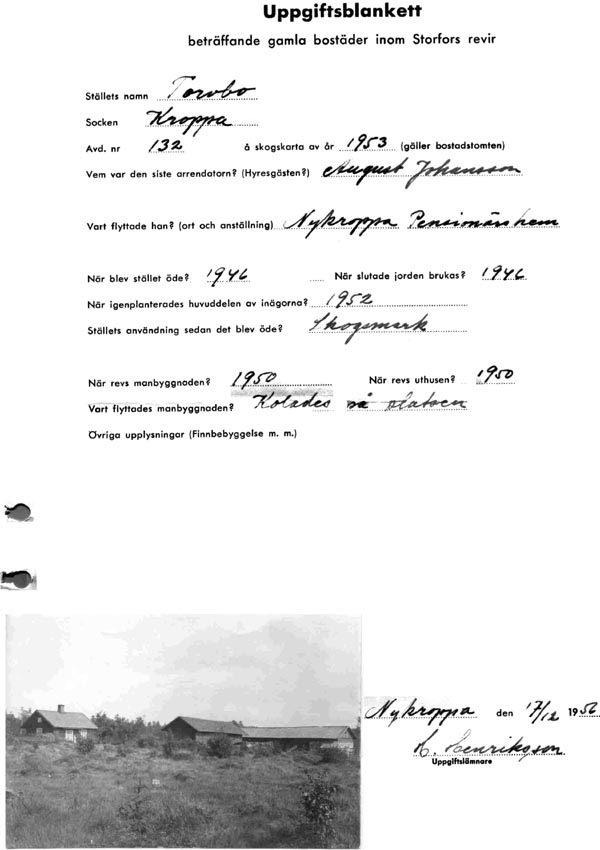 Uppgiftsblankett
beträffande gamla bostäder inom Storfors revir
Ställets namn Torvbo
Socken Kroppa
Avd. nr 132 å skogskarta av år 1953 (gäller bostadstomten)
Vem var den siste arrendatorn? (Hyresgästen?) August Johansson
Vart flyttade han? (ort och anställning) Nykroppa Pensionärshem
När blev stället öde? 1946 När slutade jorden brukas? 1946
När igenplanterades huvuddelen av inägorna? 1952
Ställets användning sedan det blev öde? Skogsmark
När revs manbyggnaden? 1950 När revs uthusen? 1950
Vart flyttades manbyggnaden? Kolades på platsen
Övriga upplysningar (Finnbebyggelse m. m.)
Nykroppa den 17/12 1956
Henriksson
Uppgiftslämnare